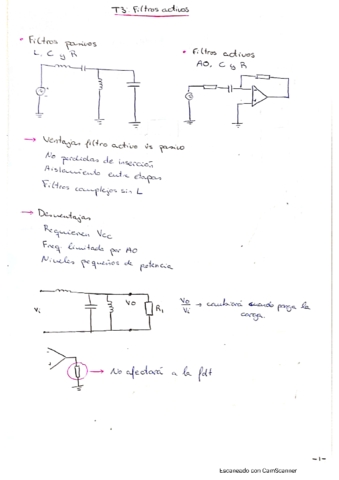 T3: Filtros activos
• Filtros pasivos
L, C y R
• Filtros activos
AO, C y R
→ Ventajas filtro activo vs pasivo
No perdidas de inserción
Aislamiento entre etapas
Filtros complejos sin L
→ Desventajas
Requieren Vcc
Freq. limitada por AO
Niveles pequeños de potencia
Vi
Vo
R1
Vo/Vi → cambiará cuando ponga la
carga.
→ No afectará a la fdt
-1-
Escaneado con CamScanner